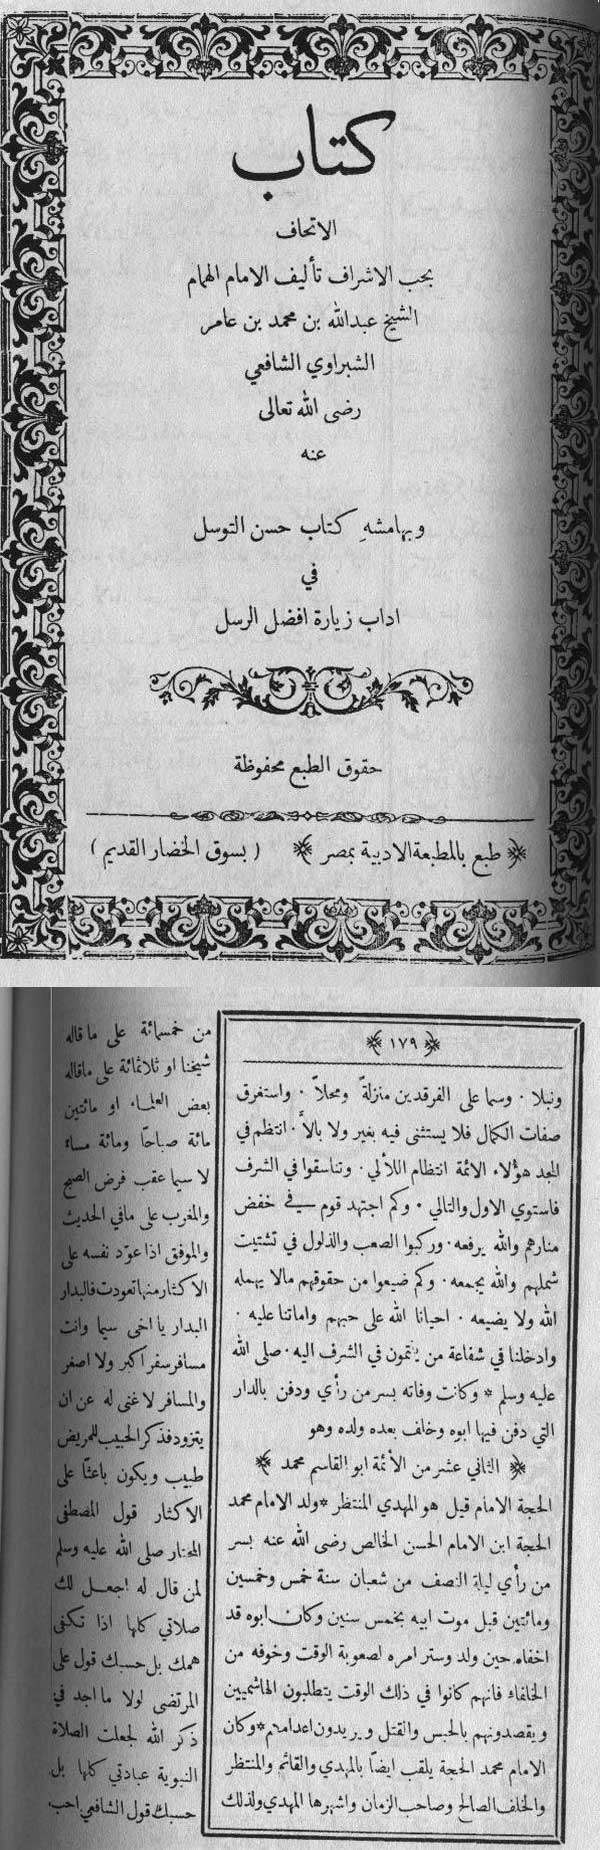 كتاب
الاتحاف
بحب الاشراف تأليف الامام الهمام
الشيخ عبدالله بن محمد بن عامر
الشبراوي الشافعي
رضى الله تعالى
عنه
وبهامشه كتاب حسن التوسل
في
اداب زيارة افضل الرسل
حقوق الطبع محفوظة
طبع بالمطبعة الادبية بمصر (بسوق الخضار القديم)
١٧٩
ونبلا . وسما على الفرقدين منزلة ومحلاّ . واستغرق
صفات الكمال فلا يستثنى فيه بغير ولا بالاّ . انتظم في
المجد هؤلاء الائمة انتظام اللآلي . وتناسقوا في الشرف
فاستوي الاول والتالي . وكم اجتهد قوم في خفض
منارهم والله يرفعه . وركبوا الصعب والذلول في تشتيت
شملهم والله يجمعه . وكم ضيعوا من حقوقهم مالا يهمله
الله ولا يضيعه . احيانا الله على حبهم واماتنا عليه .
وادخلنا في شفاعة من ينتمون في الشرف اليه . صلى الله
عليه وسلم * وكانت وفاته بسر من رأي ودفن بالدار
التي دفن فيها ابوه وخلف بعده ولده وهو
الثاني عشر من الأئمة ابو القاسم محمد
الحجة الامام قيل هو المهدي المنتظر * ولد الامام محمد
الحجة ابن الامام الحسن الخالص رضى الله عنه بسر
من رأي ليلة النصف من شعبان سنة خمس وخمسين
ومائتين قبل موت ابيه بخمس سنين وكان ابوه قد
اخفاه حين ولد وستر امره لصعوبة الوقت وخوفه من
الخلفاء فانهم كانوا في ذلك الوقت يتطلبون الهاشميين
ويقصدونهم بالحبس والقتل ويريدون اعدامهم * وكان
الامام محمد الحجة يلقب ايضًا بالمهدي والقائم والمنتظر
والخلف الصالح وصاحب الزمان واشهرها المهدي ولذلك
من خمسمائة على ماقاله
شيخنا او ثلاثمائة على ماقاله
بعض العلماء او مائتين
مائة صباحًا ومائة مساء
لا سيما عقب فرض الصبح
والمغرب على مافي الحديث
والموفق اذا عوّد نفسه على
الاكثار منها تعودت فالبدار
البدار يا اخى سيما وانت
مسافر سفر اكبر ولا اصغر
والمسافر لا غنى له عن ان
يتزود فذكر الحبيب للمريض
طبيب ويكون باعثًا على
الاكثار قول المصطفى
المختار صلى الله عليه وسلم
لمن قال له اجعل لك
صلاتي كلها اذا تكفى
همك بل حسبك قول على
المرتضى لولا ما اجد في
ذكر الله لجعلت الصلاة
النبوية عبادتي كلها بل
حسبك قول الشافعي احب